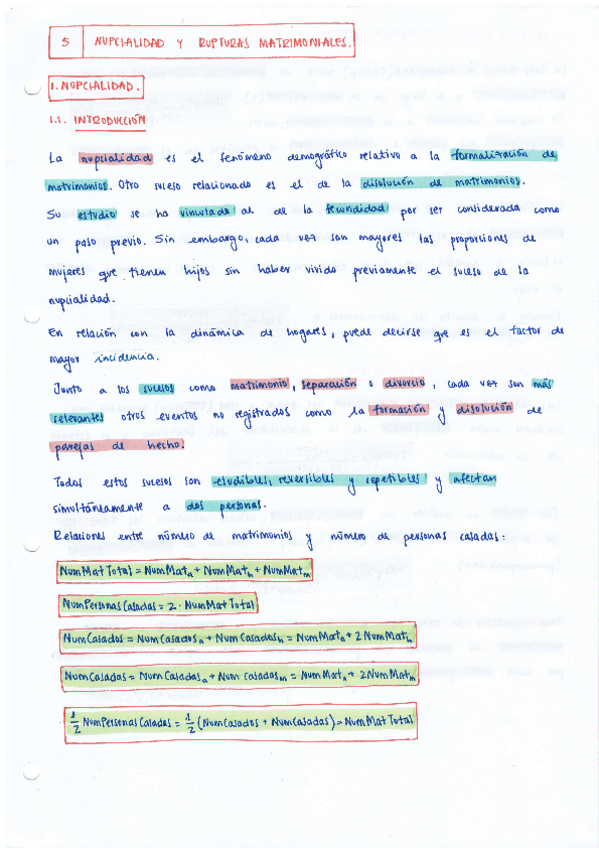 5 NUPCIALIDAD Y RUPTURAS MATRIMONIALES.
1. NUPCIALIDAD.
1.1. INTRODUCCIÓN
La nupcialidad es el fenómeno demográfico relativo a la formalización de
matrimonios. Otro suceso relacionado es el de la disolución de matrimonios.
Su estudio se ha vinculado al de la fecundidad por ser considerada como
un paso previo. Sin embargo, cada vez son mayores las proporciones de
mujeres que tienen hijos sin haber vivido previamente el suceso de la
nupcialidad.
En relación con la dinámica de hogares, puede decirse que es el factor de
mayor incidencia.
Junto a los sucesos como matrimonio, separación o divorcio, cada vez son más
relevantes otros eventos no registrados como la formación y disolución de
parejas de hecho.
Todos estos sucesos son eludibles, reversibles y repetibles y afectan
simultáneamente a dos personas.
Relaciones entre número de matrimonios y número de personas casadas:
NumMatTotal = NumMatₐ + NumMatₕ + NumMatₘ
NumPersonasCasadas = 2 · NumMatTotal
NumCasados = NumCasadosₐ + NumCasadosₕ = NumMatₐ + 2NumMatₕ
NumCasadas = NumCasadasₐ + NumCasadasₘ = NumMatₐ + 2NumMatₘ
1/2 NumPersonasCasadas = 1/2 (NumCasados + NumCasadas) = NumMatTotal